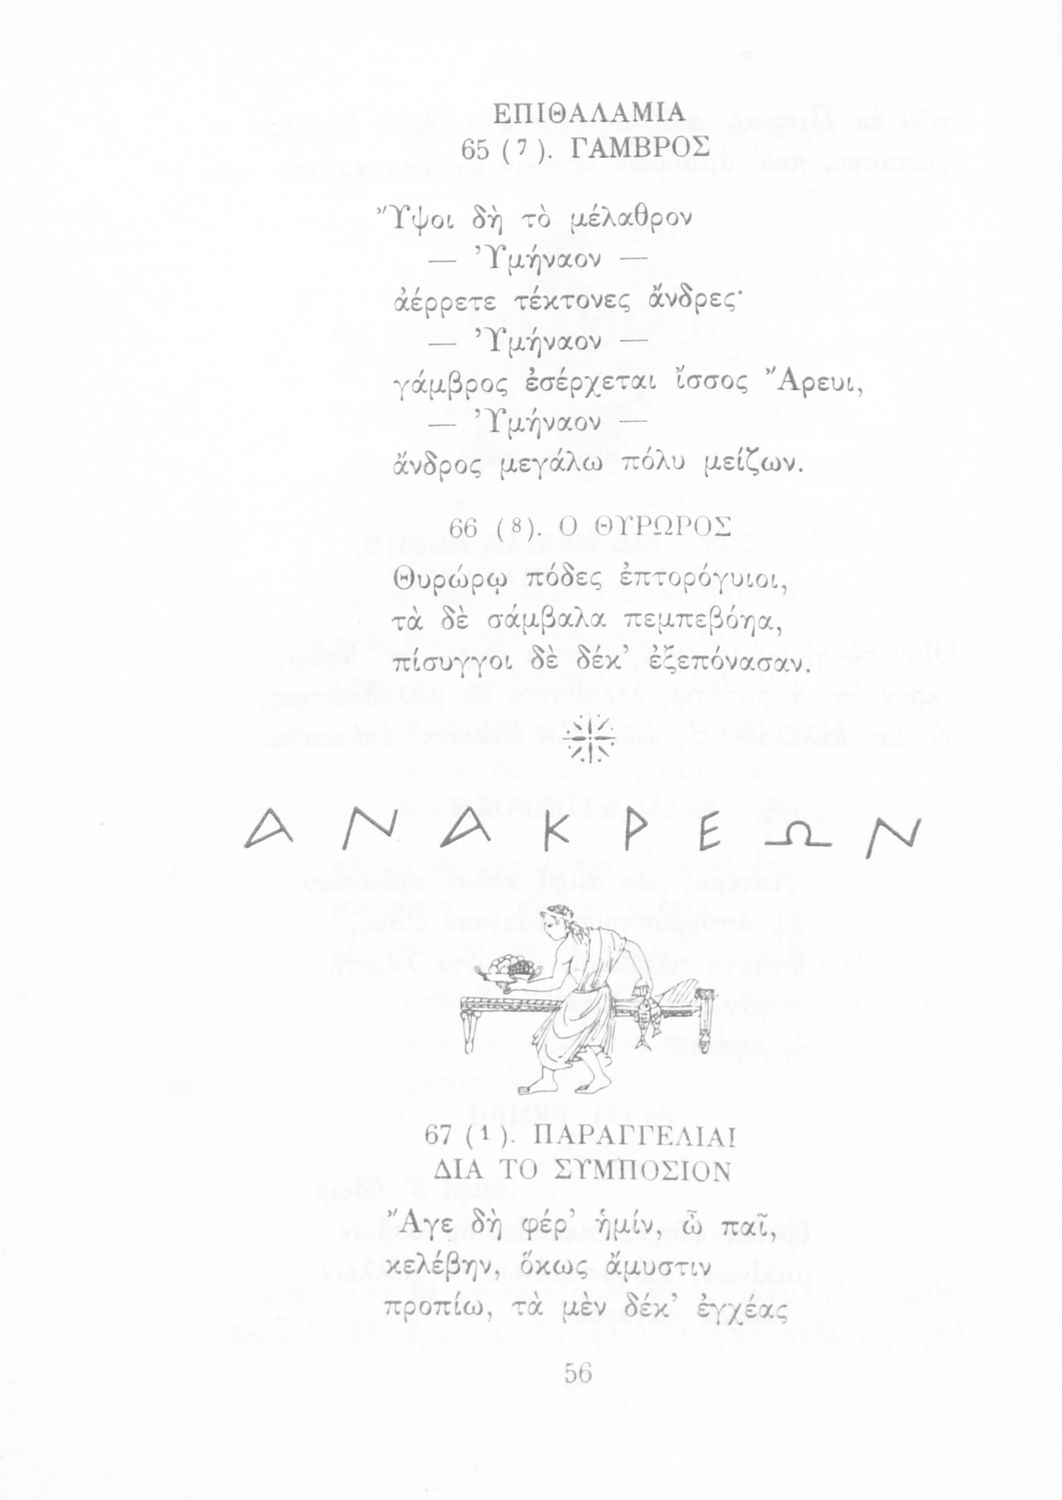 ΕΠΙΘΑΛΑΜΙΑ
65 (7). ΓΑΜΒΡΟΣ
Ὕψοι δὴ τὸ μέλαθρον
— Ὑμήναον —
ἀέρρετε τέκτονες ἄνδρες·
— Ὑμήναον —
γάμβρος ἐσέρχεται ἴσσος Ἄρευι,
— Ὑμήναον —
ἄνδρος μεγάλω πόλυ μείζων.
66 (8). Ο ΘΥΡΩΡΟΣ
Θυρώρῳ πόδες ἐπτορόγυιοι,
τὰ δὲ σάμβαλα πεμπεβόηα,
πίσυγγοι δὲ δέκ’ ἐξεπόνασαν.
ΑΝΑΚΡΕΩΝ
67 (1). ΠΑΡΑΓΓΕΛΙΑΙ
ΔΙΑ ΤΟ ΣΥΜΠΟΣΙΟΝ
Ἄγε δὴ φέρ’ ἡμίν, ὦ παῖ,
κελέβην, ὅκως ἄμυστιν
προπίω, τὰ μὲν δέκ’ ἐγχέας
56